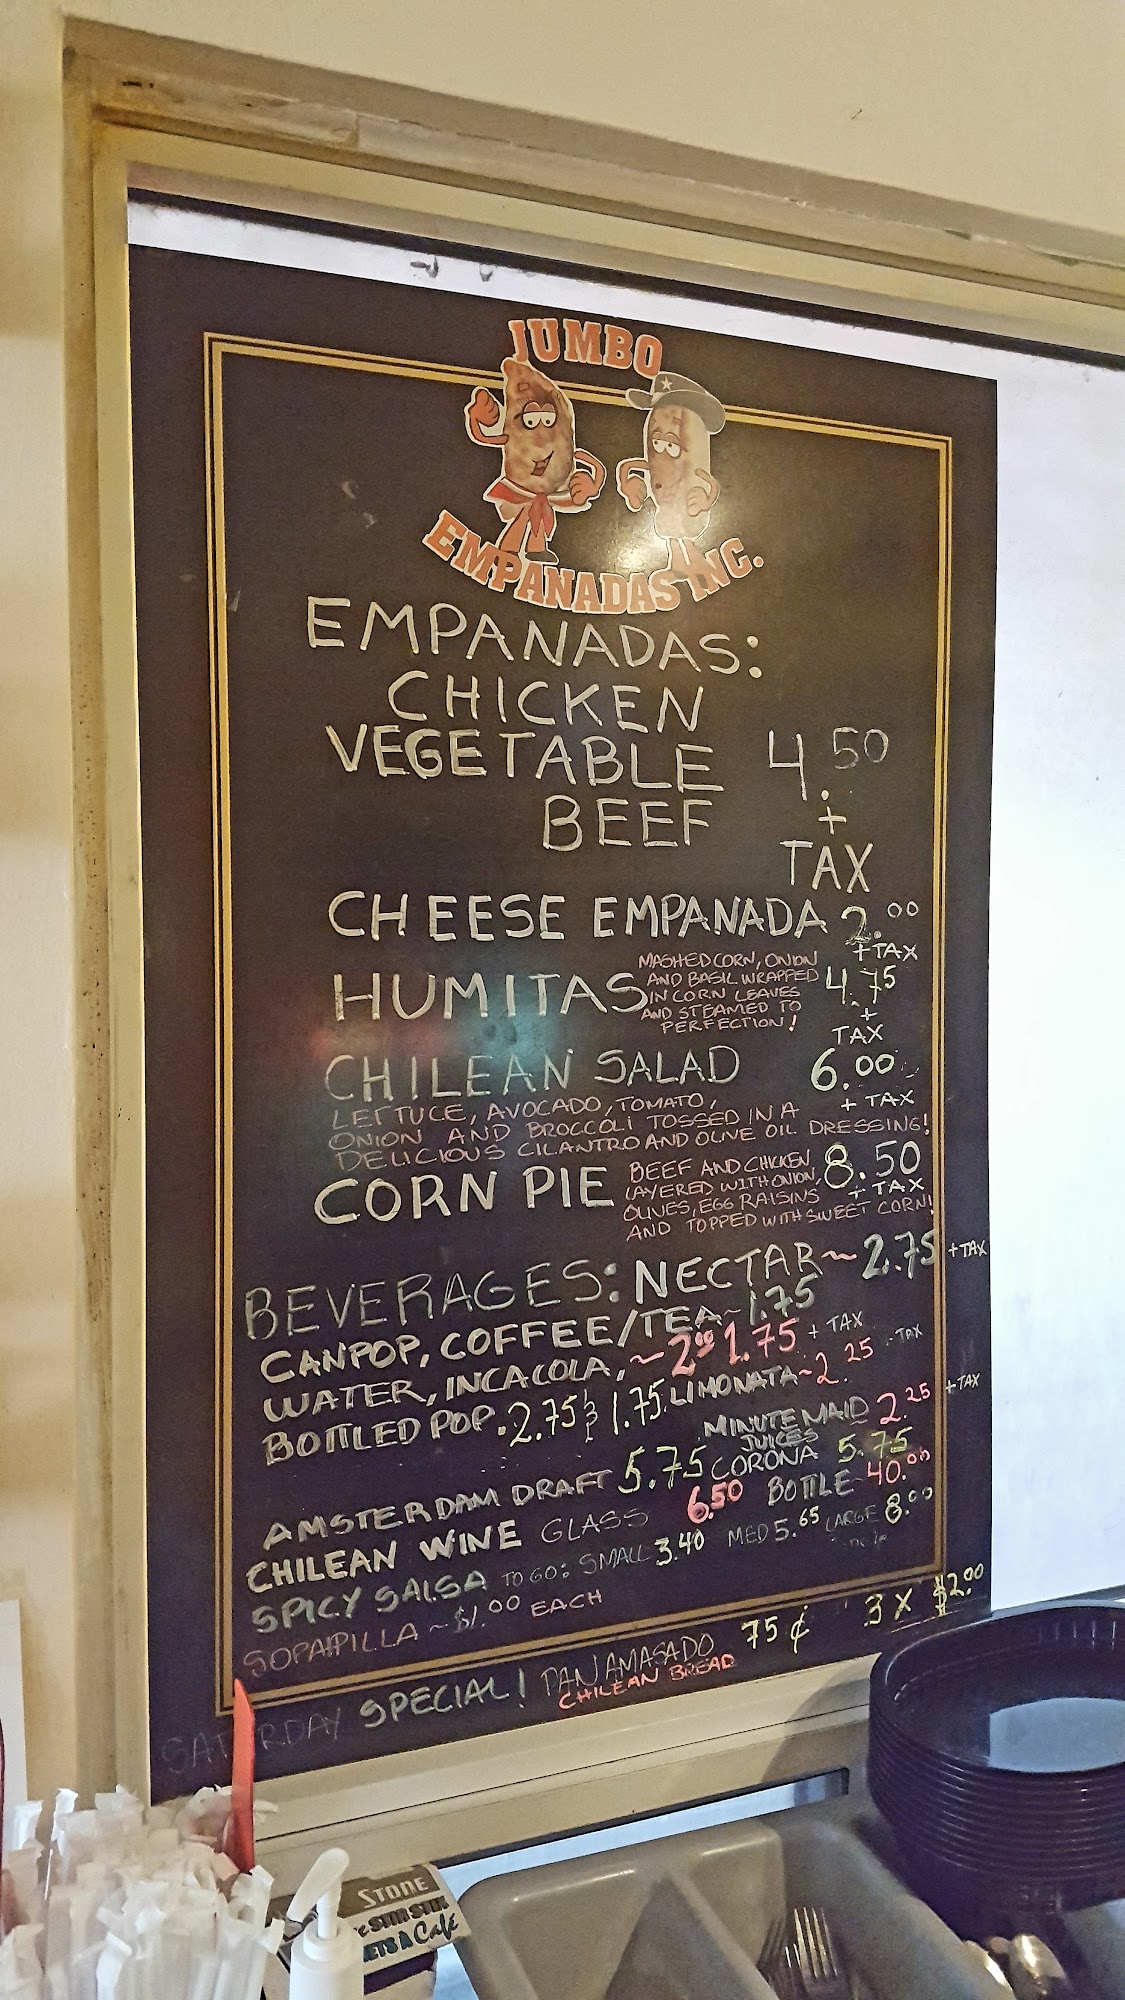 JUMBO
EMPANADAS INC.
EMPANADAS:
CHICKEN
VEGETABLE 4.50
BEEF +
TAX
CHEESE EMPANADA 2.00
+TAX
HUMITAS 4.75
+
TAX
MASHED CORN, ONION
AND BASIL WRAPPED
IN CORN LEAVES
AND STEAMED TO
PERFECTION!
CHILEAN SALAD 6.00
+ TAX
LETTUCE, AVOCADO, TOMATO,
ONION AND BROCCOLI TOSSED IN A
DELICIOUS CILANTRO AND OLIVE OIL DRESSING!
CORN PIE 8.50
+ TAX
BEEF AND CHICKEN
LAYERED WITH ONION,
OLIVES, EGG RAISINS
AND TOPPED WITH SWEET CORN!
BEVERAGES: NECTAR ~ 2.75 + TAX
CANPOP, COFFEE/TEA ~ 1.75
WATER, INCACOLA, ~ 2.00 1.75 + TAX
BOTTLED POP. 2.75 1.75 LIMONATA ~ 2.25 TAX
MINUTE MAID 2.25 + TAX
JUICES
AMSTERDAM DRAFT 5.75 CORONA 5.75
CHILEAN WINE GLASS 6.50 BOTTLE 40.00
SPICY SALSA TO GO: SMALL 3.40 MED 5.65 LARGE 8.00
SOPAIPILLA ~ $1.00 EACH
SATURDAY SPECIAL! PAN AMASADO 75¢ 3 X $2.00
CHILEAN BREAD
STONE
STIR STIX
Café